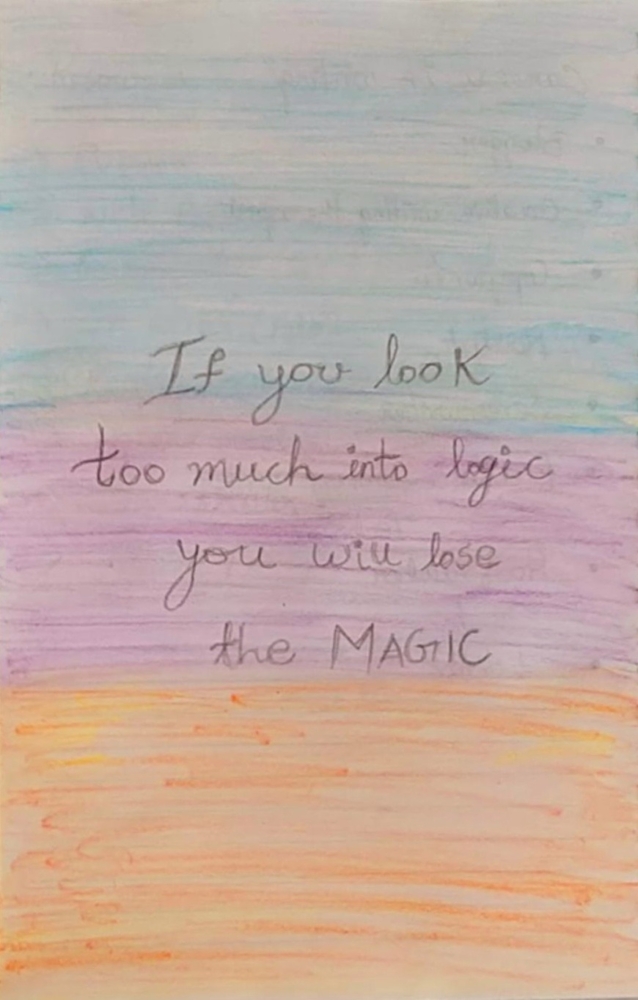 If you look
too much into logic
you will lose
the MAGIC